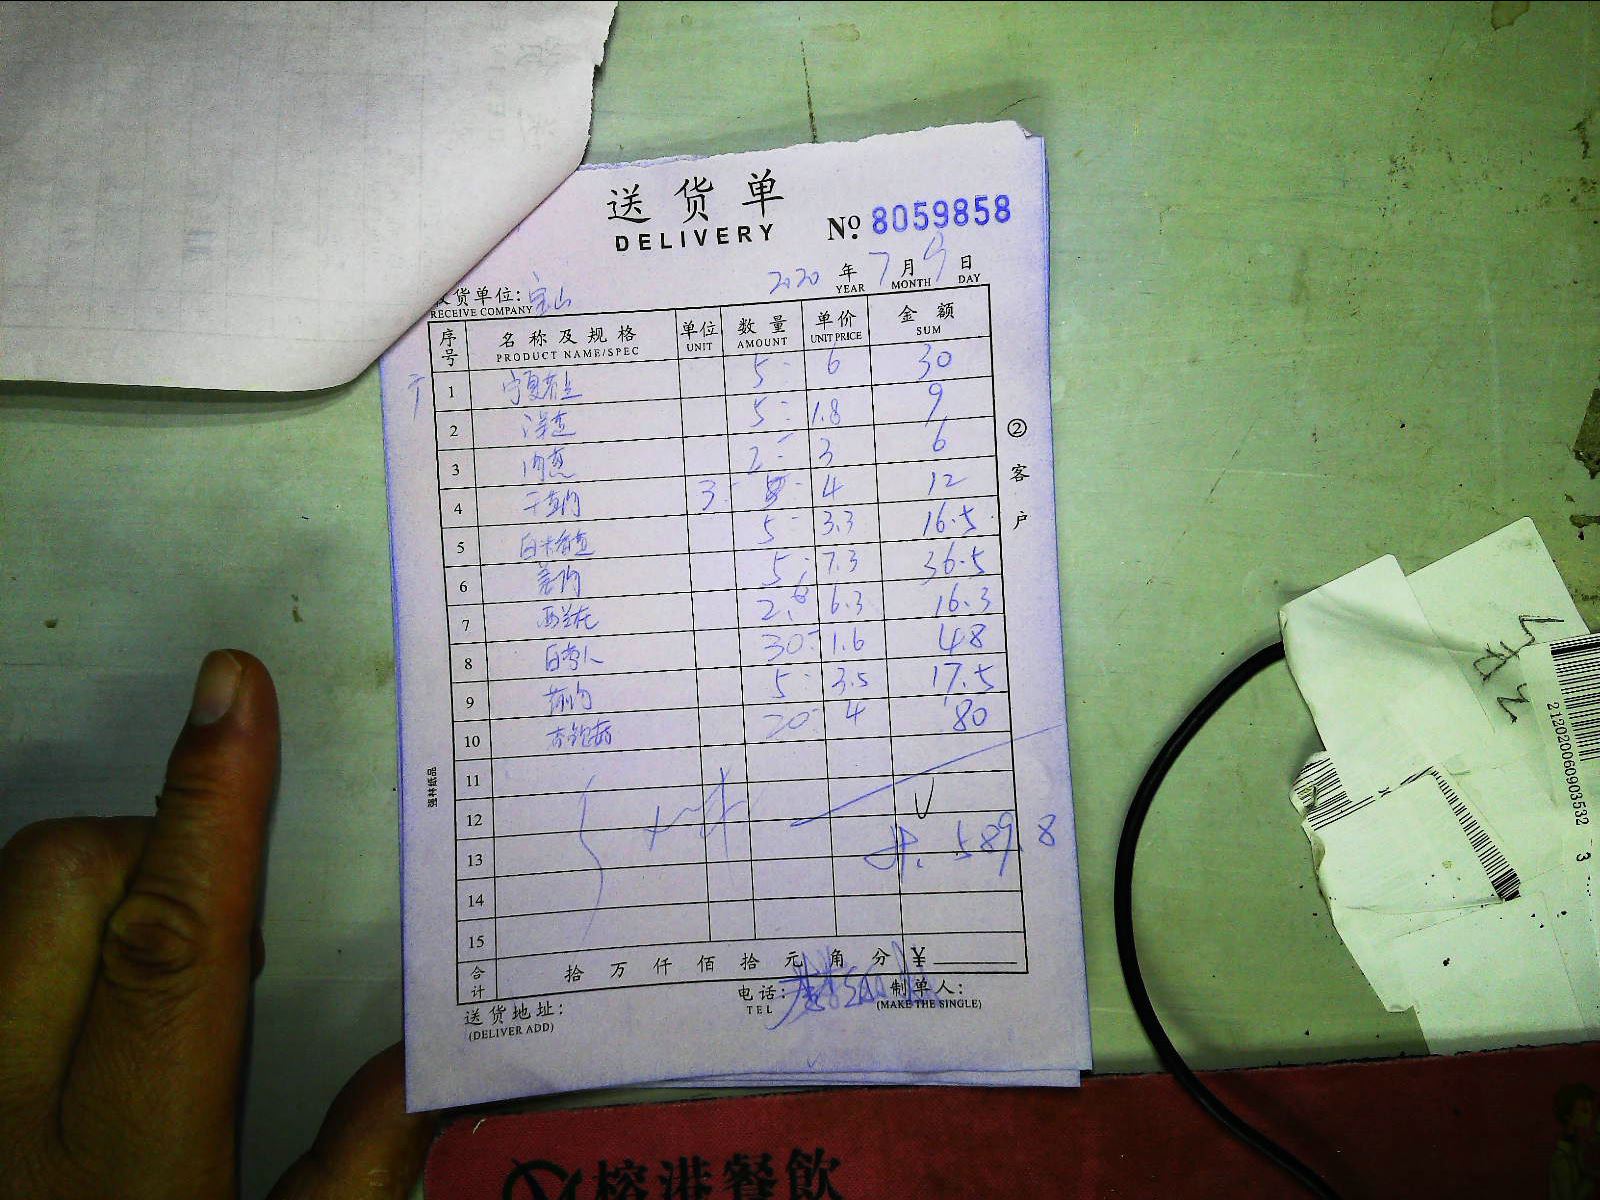 送货单
DELIVERY
No. 8059858
2020 年 7 月 9 日
YEAR MONTH DAY
货单位: 宝山
RECEIVE COMPANY
序号 名称及规格 单位 数量 单价 金额
PRODUCT NAME/SPEC UNIT AMOUNT UNIT PRICE SUM
1 5 6 30
2 5 1.8 9
3 2 3 6
4 3 4 12
5 5 3.3 16.5
6 5 7.3 36.5
7 西兰花 2.6 6.3 16.3
8 30 1.6 48
9 5 3.5 17.5
10 杏鲍菇 20 4 80
11
12
13 589.8
14
15
合计 拾 万 仟 佰 拾 元 角 分 ¥
送货地址: 电话: 制单人:
(DELIVER ADD) TEL (MAKE THE SINGLE)
② 客户
212020060903532 3
榕港餐飲